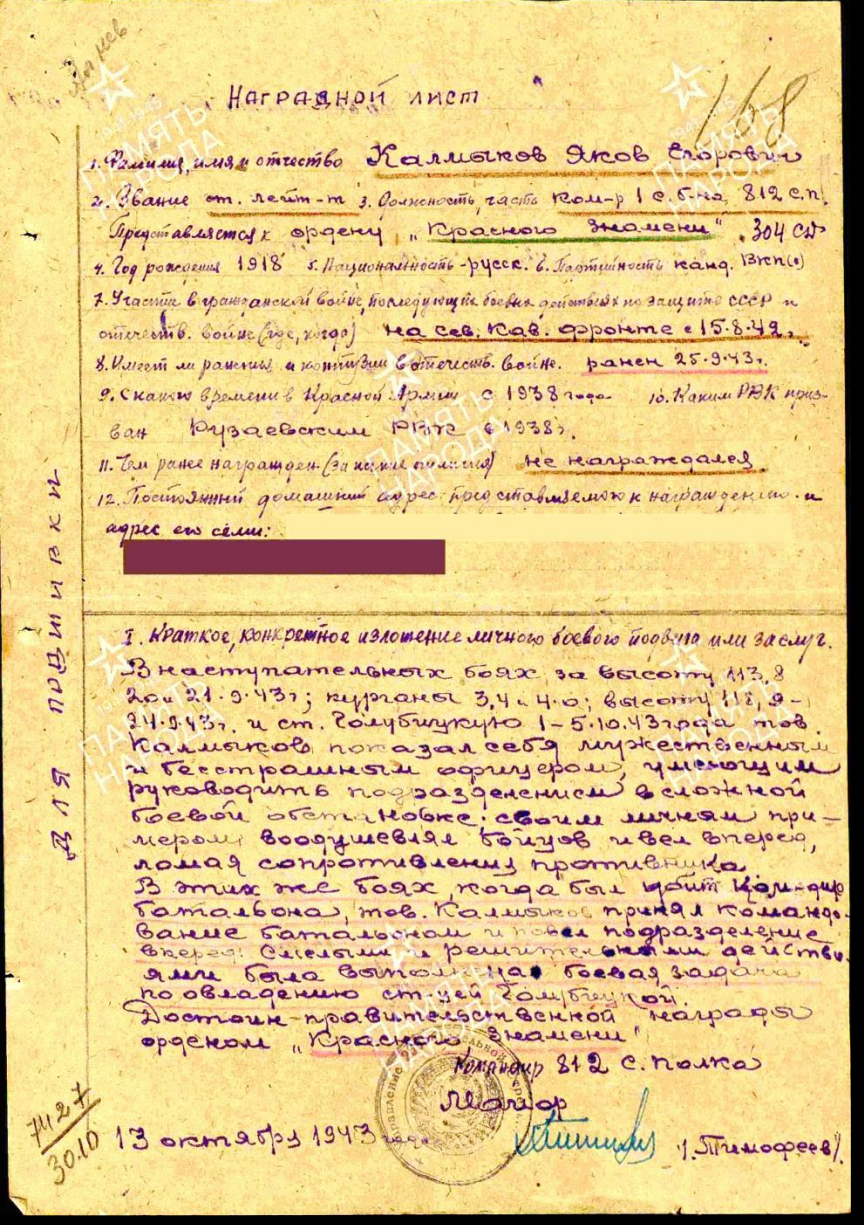 168
Наградной лист
1. Фамилия, имя и отчество Калмыков Яков Егорович
2. Звание ст. лейт-т 3. Должность, часть ком-р 1 с.б-на 812 с.п.
Представляется к ордену "Красного Знамени" 304 сд
4. Год рождения 1918 5. Национальность - русск. 6. Партийность канд. ВКП(б)
7. Участие в гражданской войне, последующих боевых действиях по защите СССР и
отечеств. войне (где, когда) на сев. Кав. фронте с 15.8.42г.
8. Имеет ли ранения и контузии в отечеств. войне. ранен 25.9.43г.
9. С какого времени в Красной Армии с 1938 года 10. Каким РВК приз-
ван Рузаевским РВК в 1938г.
11. Чем ранее награжден (за какие отличия) не награждался
12. Постоянный домашний адрес представляемого к награждению и
адрес его семьи:
Для подшивки
I. Краткое, конкретное изложение личного боевого подвига или заслуг.
В наступательных боях за высоту 113,8
20 и 21.9.43г; курганы 3,4 и 4.0; высоту 118,9-
24.9.43г. и ст. Голубицкую 1-5.10.43 года тов
Калмыков показал себя мужественным
и бесстрашным офицером, умеющим
руководить подразделением в сложной
боевой обстановке. своим личным при-
мером воодушевлял бойцов и вел вперед,
ломая сопротивления противника
В этих же боях, когда был убит командир
батальона, тов. Калмыков принял командо-
вание батальоном и повел подразделение
вперед. Смелыми и решительными действи-
ями была выполнена боевая задача
по овладению ст-цей Голубицкой.
Достоин правительственной награды
орденом "Красного Знамени"
Командир 812 с. полка
Майор
13 октября 1943 года /Тимофеев/
7427
30.10
ПАМЯТЬ НАРОДА